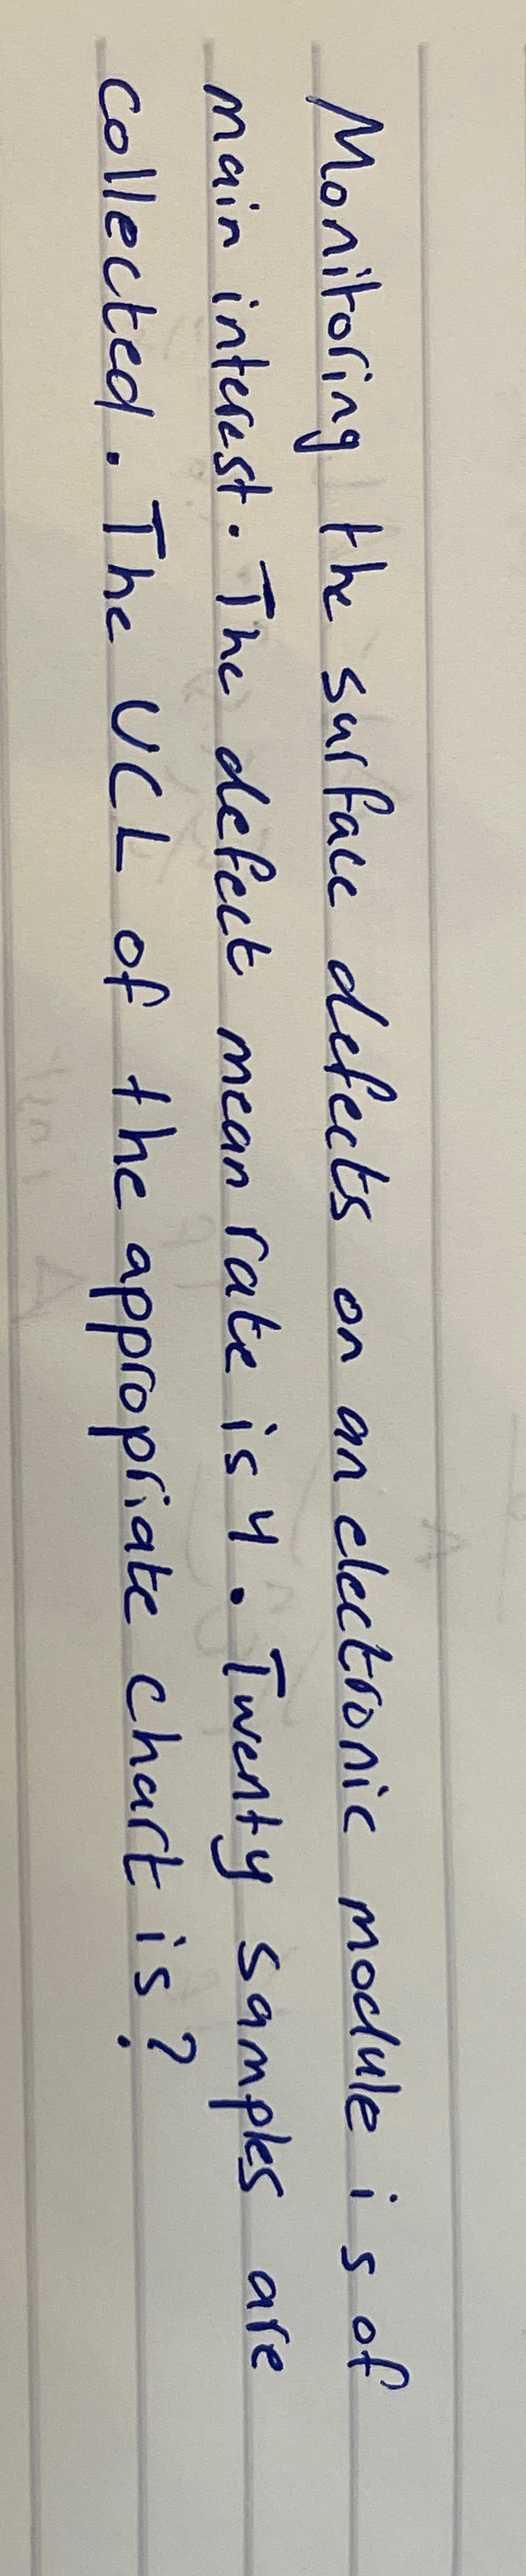 Monitoring the surface defects on an electronic module is of
main interest. The defect mean rate is 4. Twenty samples are
collected. The UCL of the appropriate chart is?